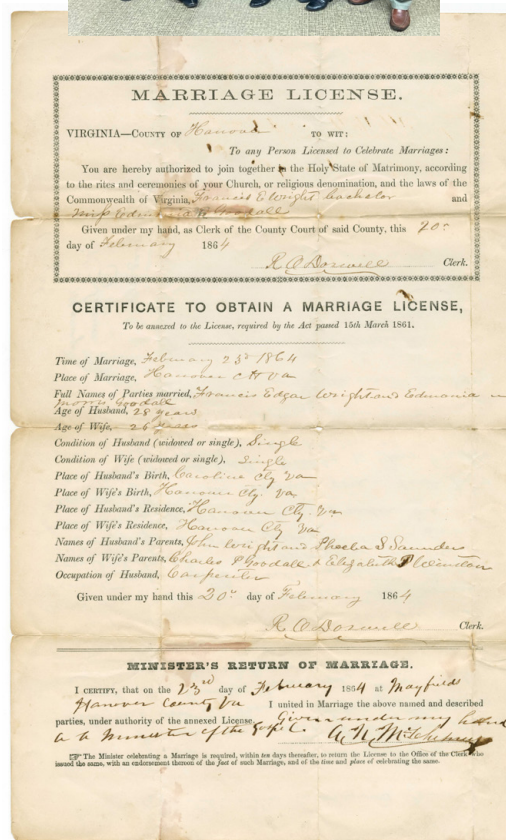 MARRIAGE LICENSE.
VIRGINIA—COUNTY OF Hanover TO WIT:
To any Person Licensed to Celebrate Marriages:
You are hereby authorized to join together in the Holy State of Matrimony, according
to the rites and ceremonies of your Church, or religious denomination, and the laws of the
Commonwealth of Virginia, Francis E Wright bachelor and
Miss Goodall
Given under my hand, as Clerk of the County Court of said County, this 20th
day of February 1864
R O Doswell Clerk.
CERTIFICATE TO OBTAIN A MARRIAGE LICENSE,
To be annexed to the License, required by the Act passed 15th March 1861.
Time of Marriage, February 23d 1864
Place of Marriage, Hanover CH Va
Full Names of Parties married, Francis Edgar Wright and Edmonia
Morris Goodall
Age of Husband, 28 years
Age of Wife, 26 years
Condition of Husband (widowed or single), Single
Condition of Wife (widowed or single), Single
Place of Husband's Birth, Caroline Cty Va
Place of Wife's Birth, Hanover Cty. Va
Place of Husband's Residence, Hanover Cty. Va
Place of Wife's Residence, Hanover Cty Va
Names of Husband's Parents, John Wright and Pheeba S Saunders
Names of Wife's Parents, Charles P Goodall & Elizabeth P Winston
Occupation of Husband, Carpenter
Given under my hand this 20th day of February 1864
R O Doswell Clerk.
MINISTER'S RETURN OF MARRIAGE.
I CERTIFY, that on the 23rd day of February 1864 at Mayfield
Hanover County Va I united in Marriage the above named and described
parties, under authority of the annexed License. Given under my hand
as a Minister of the Gospel.
☞ The Minister celebrating a Marriage is required, within ten days thereafter, to return the License to the Office of the Clerk who
issued the same, with an endorsement thereon of the fact of such Marriage, and of the time and place of celebrating the same.